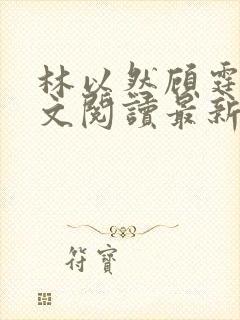 林以然顾霆
文閱讀最新
符寶